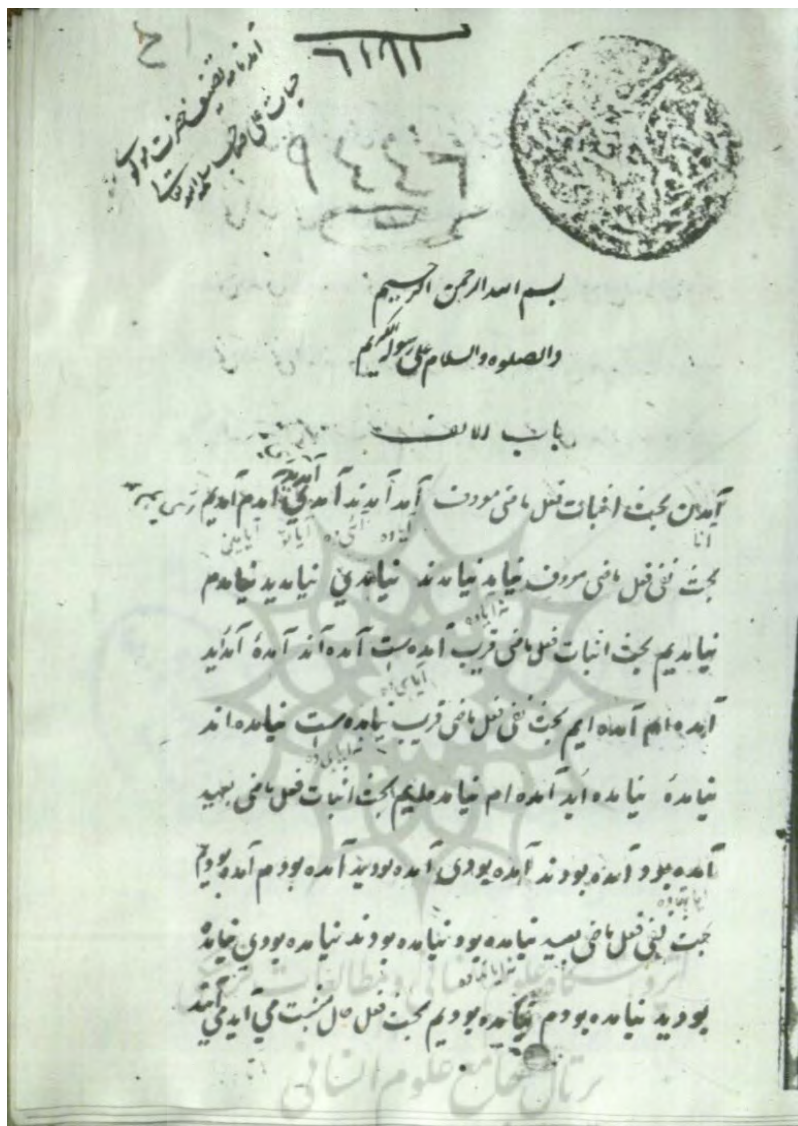 آمدنامه تصنیف حضرت مولوی
حیات علی صاحب سلمه الله تعالی
بسم الله الرحمن الرحیم
والصلوه والسلام علی رسوله الکریم
باب الالف
آمدن بحث اثبات فعل ماضی معروف آمد آمدند آمدی آمدید آمدم آمدیم
بحث نفی فعل ماضی معروف نیامد نیامدند نیامدی نیامدید نیامدم
نیامدیم بحث اثبات فعل ماضی قریب آمده است آمده اند آمدهٔ آمده اید
آمده ام آمده ایم بحث نفی فعل ماضی قریب نیامده است نیامده اند
نیامدهٔ نیامده اید نیامده ام نیامده ایم بحث اثبات فعل ماضی بعید
آمده بود آمده بودند آمده بودی آمده بودید آمده بودم آمده بودیم
بحث نفی فعل ماضی بعید نیامده بود نیامده بودند نیامده بودی نیامده
بودید نیامده بودم نیامده بودیم بحث فعل حال مثبت می آید می آیند
پژوهشگاه علوم انسانی و مطالعات فرهنگی
پرتال جامع علوم انسانی